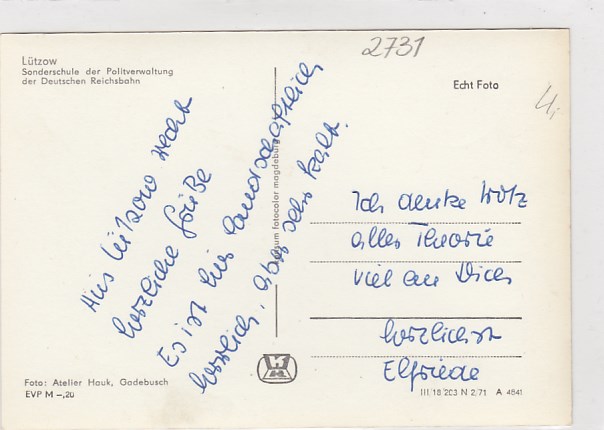 Lützow
Sonderschule der Politverwaltung
der Deutschen Reichsbahn
2731
Echt Foto
Aus Lützow recht
herzliche Grüße
Es ist hier landschaftlich
herrlich, aber sehr kalt.
fotocolor magdeburg
Ich denke trotz
aller Theorie
viel an Dich
herzlichst
Elfriede
Foto: Atelier Hauk, Gadebusch
EVP M -,20
III/18/203 N 2/71 A 4641